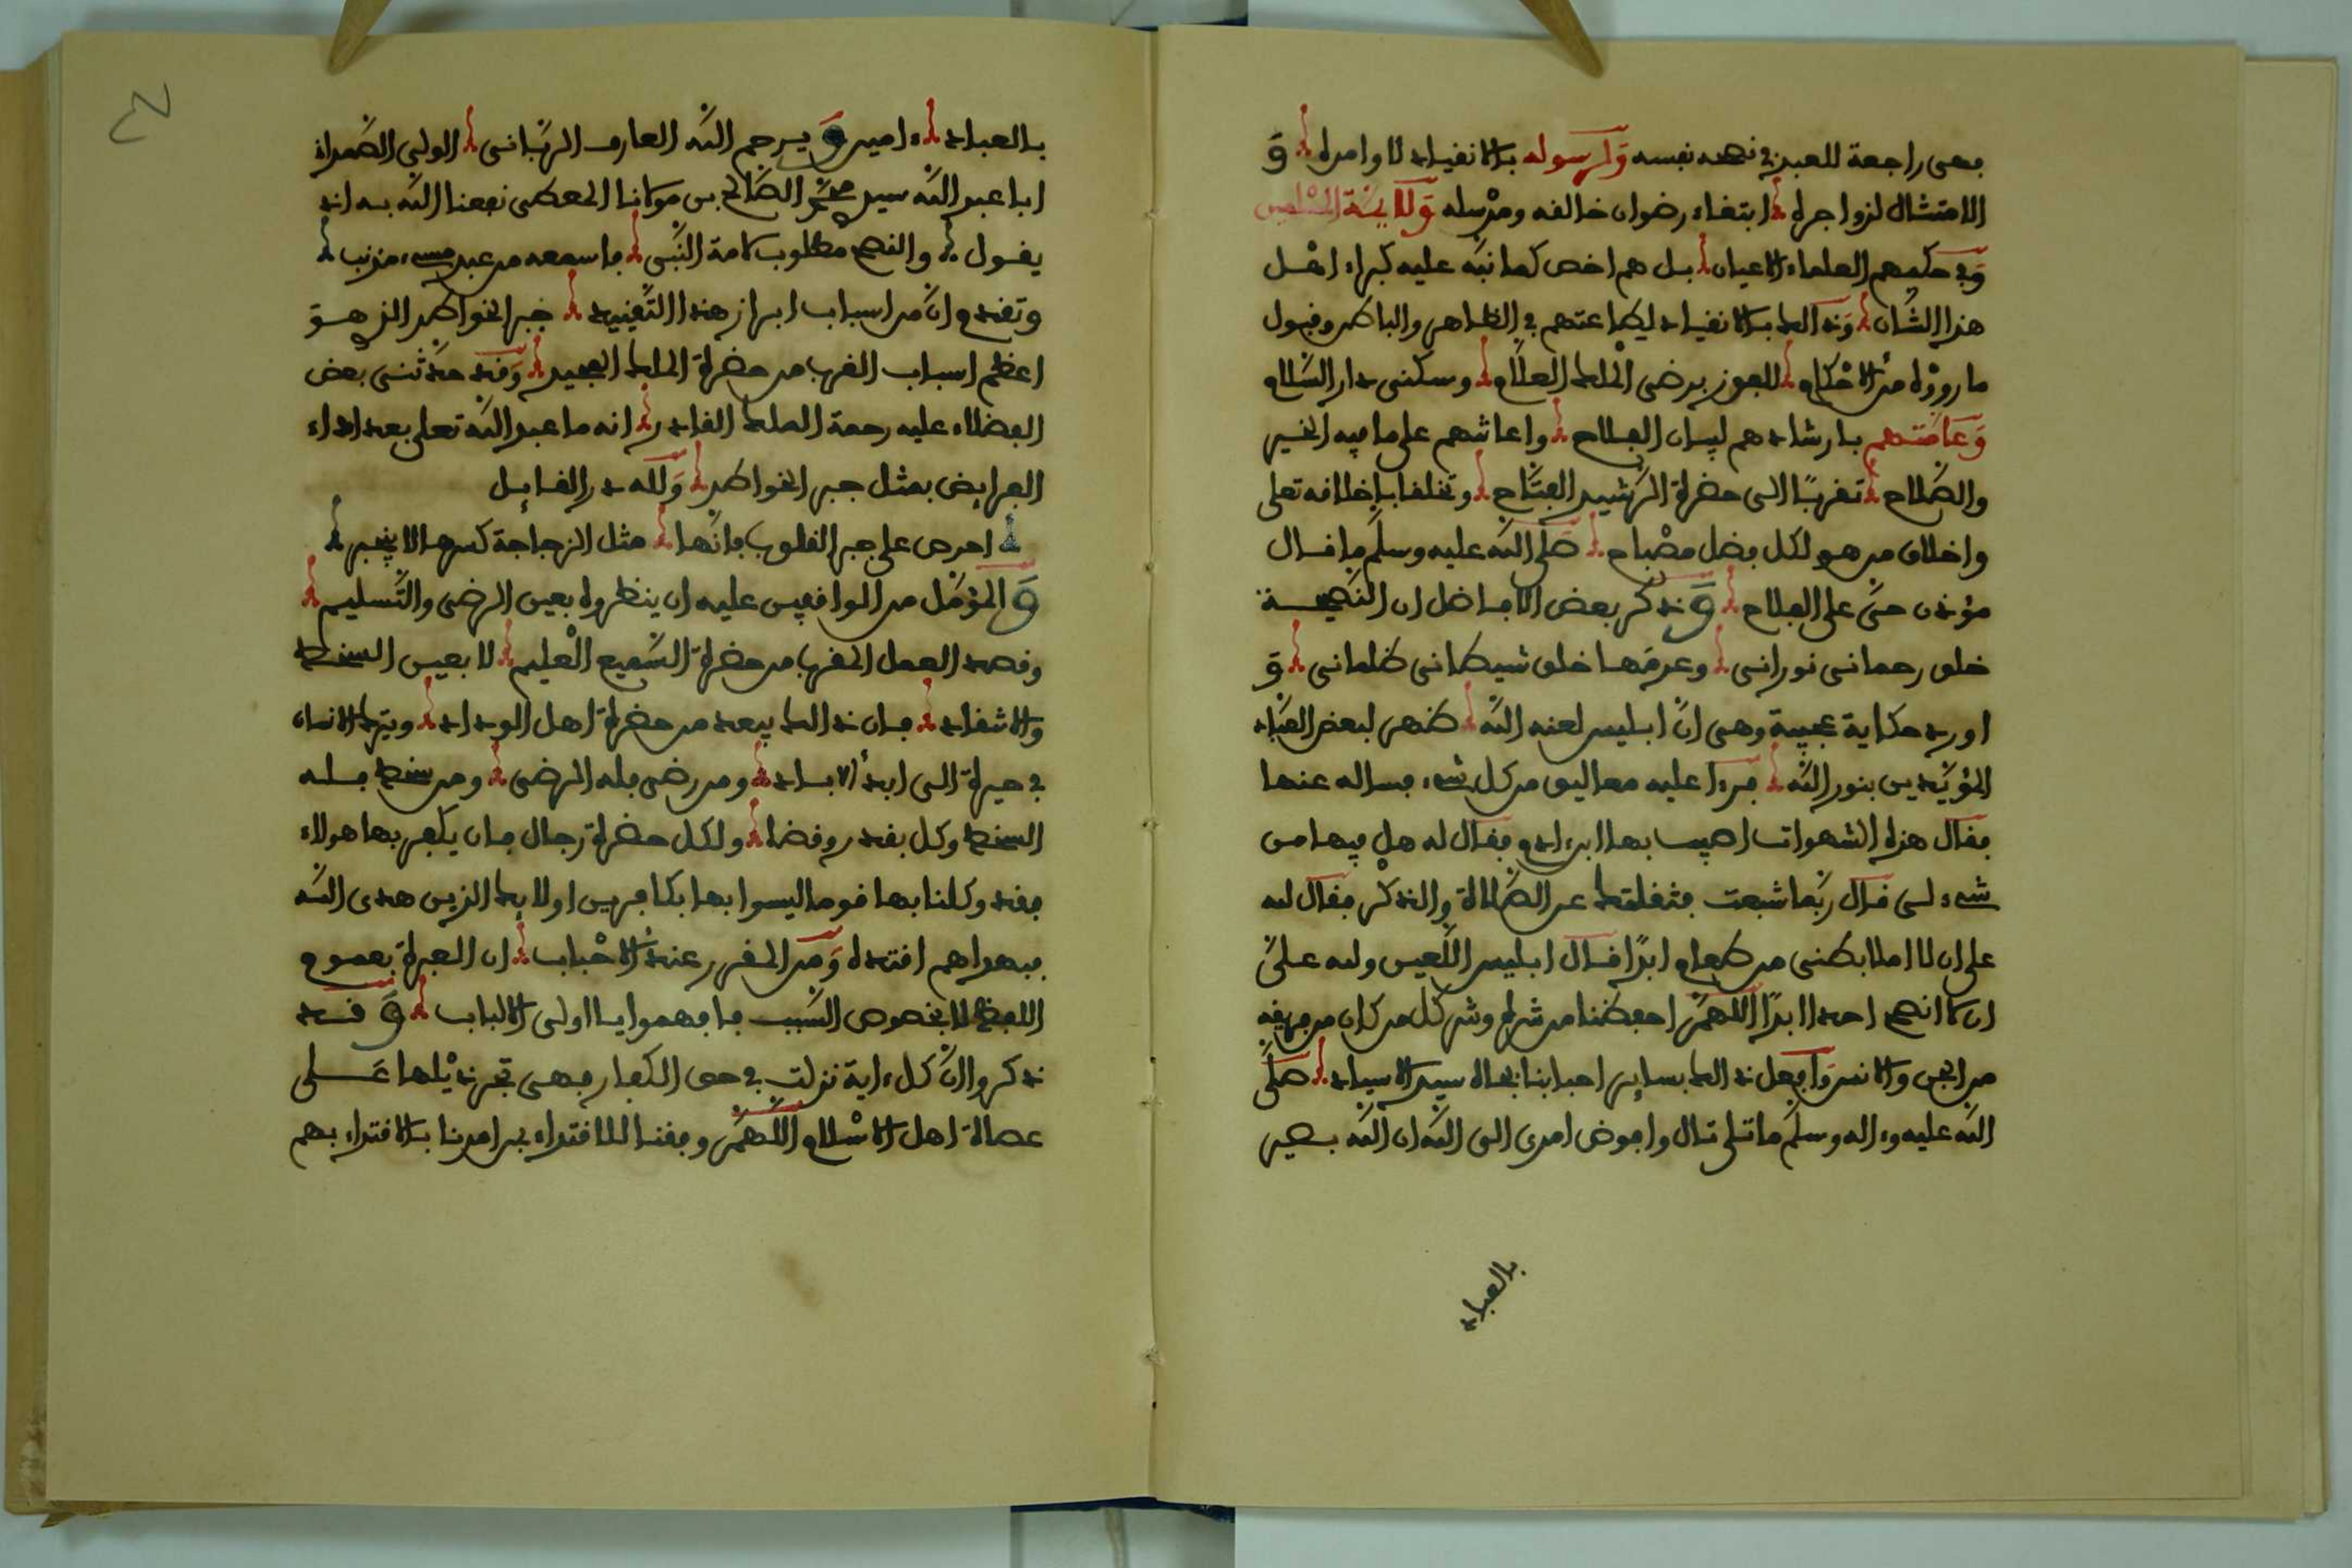 فهى راجعة للعبد في نصح نفسه وَلرسوله بالانفياد لاوامره وَ
الامتثال لزواجره ابتغاء رضوان خالقه ومرْسله وَلأئمّة المسْلمين
وَفي حكمهم العلماء الاعيان بل هم اخص كما نبّه عليه كبراء اهل
هذا الشّان وَذالك بالانقياد لطاعتهم في الظاهر والباطن وقبول
ما روَوْه من الاحْكام للفوز برضى الْملك العلّام وسكنى دار السّلام
وَعامّتهم بارشادهم لسان الفلاح واعانتهم على ما فيه الخير
والصّلاح تقربًا الى حضرة الرّشيد الفتّاح وتخلقا باخلاقه تعلى
واخلاق من هو لكل فضل مصْباح صَلى اللّه عليه وسلّم ما قال
مؤذن حىّ على الفلاح وَذكر بعض الافاضل ان النّصيحة
خلق رحمانى نورانى وعدمها خلق شيطانى ظلمانى وَ
اورد حكاية عجيبة وهى انّ ابليس لعنه اللّه ظهر لبعض العبّاد
المؤيّدين بنور اللّه فرءا عليه معاليق من كل شىء فساله عنها
فقال هذه الشهوات اصيب بها ابن ءادم فقال له هل فيها من
شىء لى قال ربّما شبعت فثقلتك عن الصّلاة والذكْر فقال لله
على ان لا املا بطنى من طعام ابدًا قال ابليس اللّعين ولله علىّ
ان لا انصح احدا ابدًا اللّهمّ احفظنا من شره وشر كل من كان من فريقه
من الجن والانس وَافعل ذالك بسائر احبابنا بجاه سيد الاسياد صَلّى
اللّه عليه وءاله وسلّم ما تلى تال وافوض امرى الى اللّه ان اللّه بصير
بالعباد
بالعباد ءامين وَيرحم اللّه العارف الرّبّانى الولي الصّمداني
ابا عبد اللّه سيدي محمّد الصّالح بن مولانا المعطى نفعنا اللّه به اذ
يقول والنصح مطلوب لامة النّبى فاسمعه من عبد مسىء مذنب
وتقدم انّ من اسباب ابراز هذا التّقييد جبر الخواطر الذي هو
اعظم اسباب القرب من حضرة الملك المجيد وَقد حدّثنى بعض
الفضلاء عليه رحمة الملك القادر انه ما عبد اللّه تعلى بعد اداء
الفرايض بمثل جبر الخواطر وَلله در القايل
احرص على جبر القلوب فانّها مثل الزجاجة كسرها لا يجبر
وَالمؤمّل من الواقفين عليه ان ينظروه بعين الرضى والتّسليم
وقصد العمل المقرب من حضرة السّميع الْعليم لا بعين السخط
والانتقاد فان ذالك يبعد من حضرة اهل الوداد ويترك الانسان
في حيرة الى ابد الاباد ومن رضى فله الرضى ومن سخط فله
السخط وكل بقدر وقضا ولكل حضرة رجال فان يكفر بها هولاء
فقد وكلنا بها قوما ليسوا بها بكافرين اولايك الذين هدى اللّه
فبهداهم اقتده وَمن المقرر عند الاحْباب ان العبرة بعموم
اللفظ لا بخصوص السّبب فافهموا يا اولى الالباب وَقد
ذكروا انّ كل ءاية نزلت في حق الكفار فهى تجر ذيْلها عَلى
عصاة اهل الاسْلام اللّهمّ وفقنا للاقتداء بمن امرتنا بالاقتداء بهم